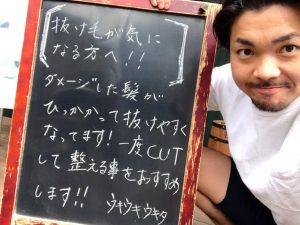 抜け毛が気に
なる方へ!!
ダメージした髪が
ひっかかって抜けやすく
なってます!一度CUT
して整える事をおすすめ
します!!
ウキウキウキタ